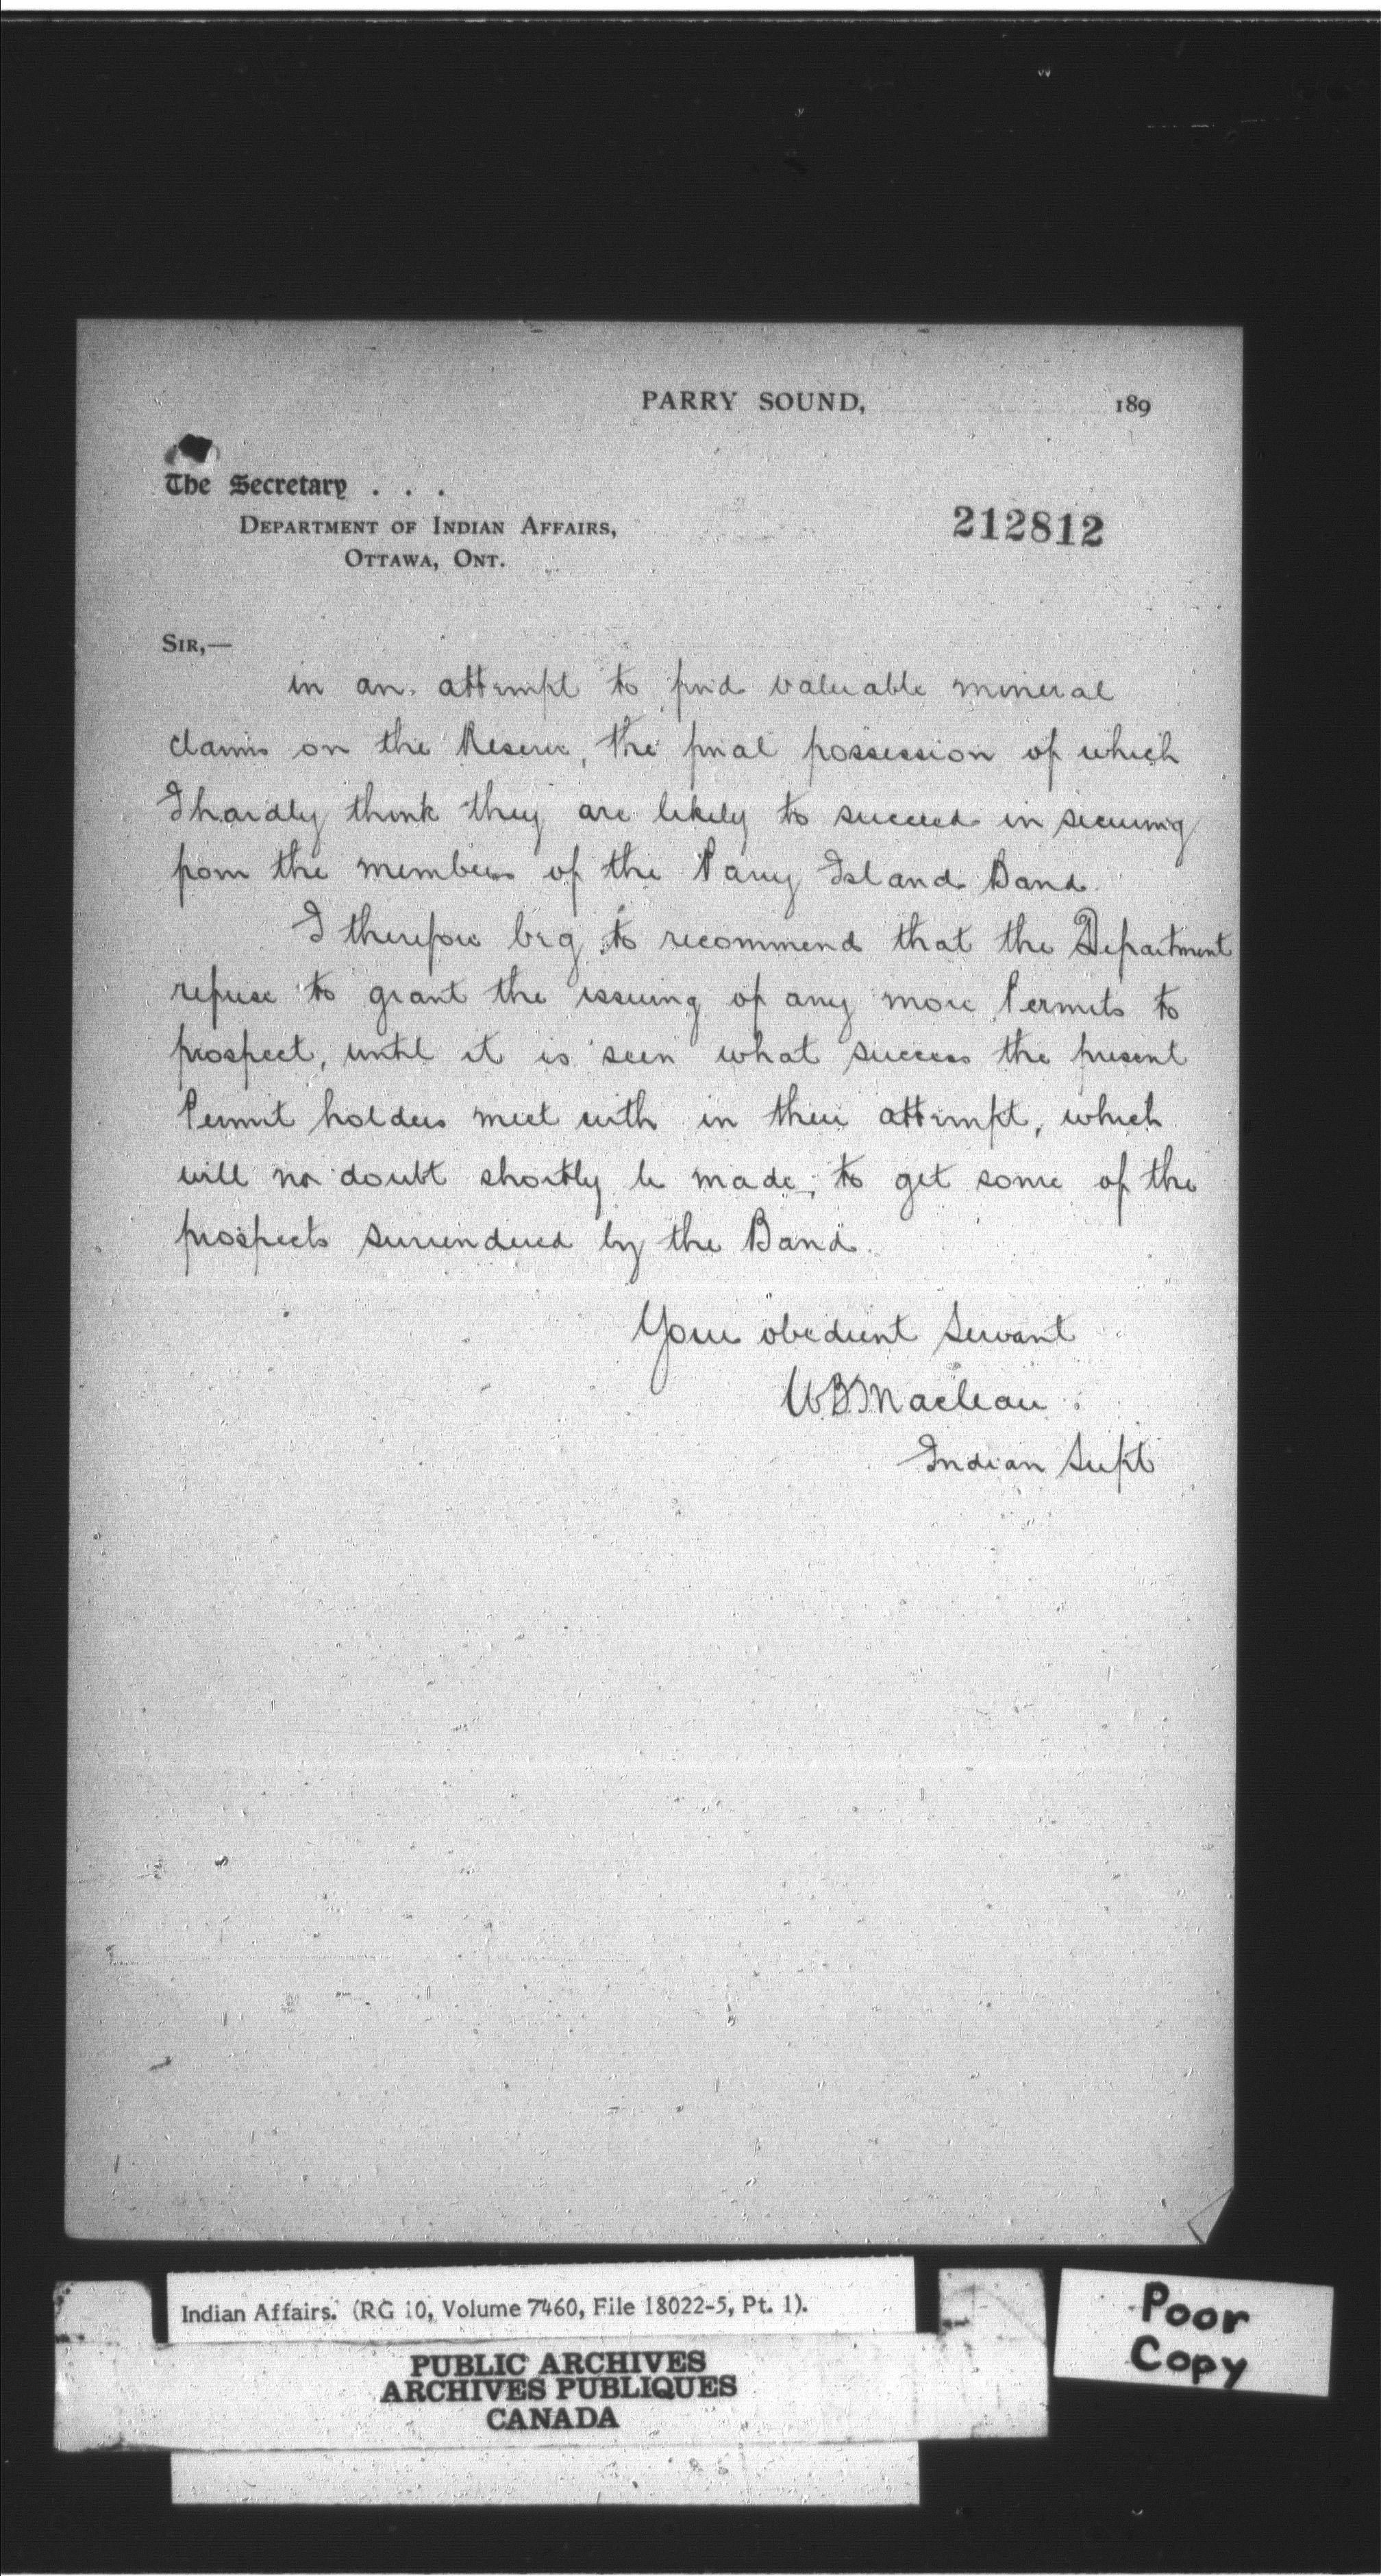 PARRY SOUND, 189
The Secretary . . .
DEPARTMENT OF INDIAN AFFAIRS,
OTTAWA, ONT.
212812
SIR,—
in an attempt to find valuable mineral
claims on the Reserve, the final possession of which
I hardly think they are likely to succeed in securing
from the members of the Parry Island Band.
I therefore beg to recommend that the Department
refuse to grant the issuing of any more Permits to
prospect, until it is seen what success the present
Permit holders meet with in their attempt, which
will no doubt shortly be made, to get some of the
prospects surrendered by the Band.
Your obedient Servant
W B Maclean
Indian Supt
Indian Affairs. (RG 10, Volume 7460, File 18022-5, Pt. 1).
PUBLIC ARCHIVES
ARCHIVES PUBLIQUES
CANADA
Poor
Copy